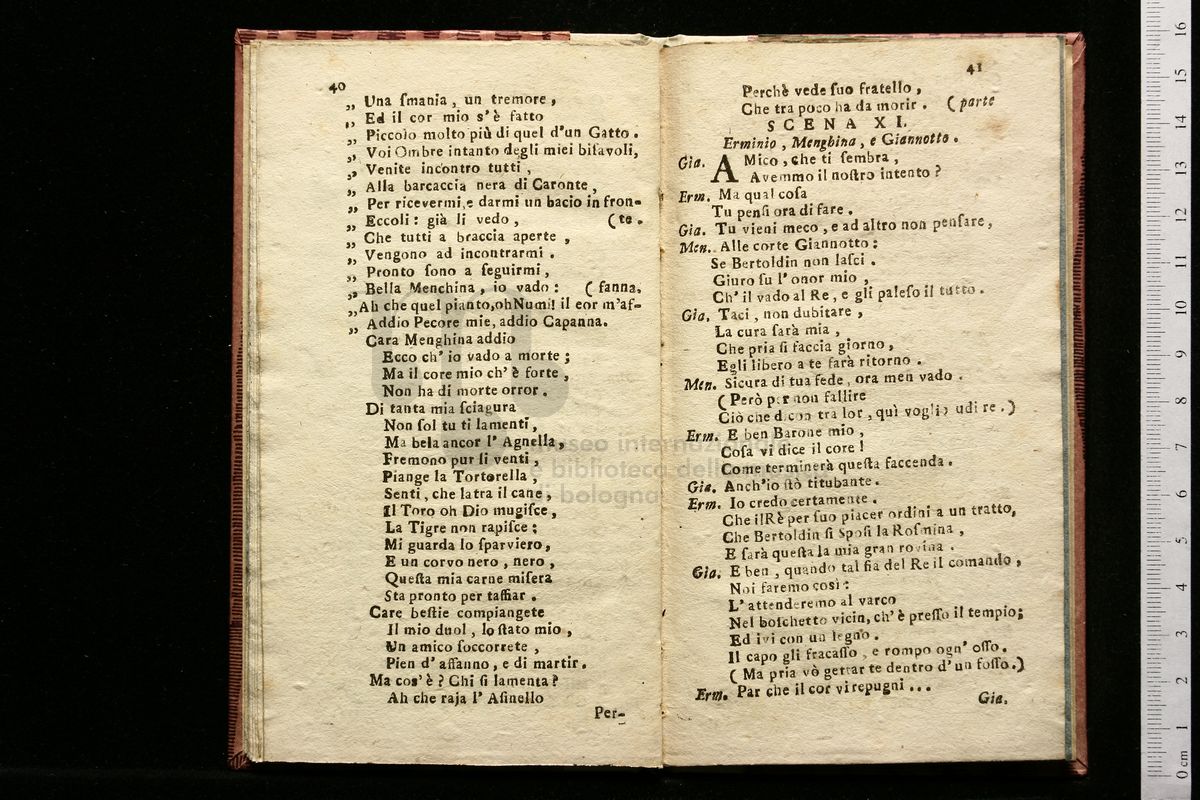 40
„ Una ſmania, un tremore,
„ Ed il cor mio s'è fatto
„ Piccolo molto più di quel d'un Gatto.
„ Voi Ombre intanto degli miei biſavoli,
„ Venite incontro tutti,
„ Alla barcaccia nera di Caronte,
„ Per ricevermi,e darmi un bacio in fron-
„ Eccoli: già li vedo, (te.
„ Che tutti a braccia aperte,
„ Vengono ad incontrarmi.
„ Pronto ſono a ſeguirmi,
„ Bella Menchina, io vado: (fanna.
„Ah che quel pianto,ohNumi! il eor m'af-
„ Addio Pecore mie, addio Capanna.
Cara Menghina addio
Ecco ch' io vado a morte;
Ma il core mio ch' è forte,
Non ha di morte orror.
Di tanta mia ſciagura
Non ſol tu ti lamenti,
Ma bela ancor l' Agnella,
Fremono pur li venti,
Piange la Tortorella,
Senti, che latra il cane,
Il Toro oh Dio mugiſce,
La Tigre non rapiſce;
Mi guarda lo ſparviero,
E un corvo nero, nero,
Queſta mia carne miſera
Sta pronto per taffiar.
Care beſtie compiangete
Il mio duol, lo ſtato mio,
Un amico ſoccorrete,
Pien d' affanno, e di martir.
Ma cos' è? Chi ſi lamenta?
Ah che raja l' Aſinello
Per-
41
Perchè vede ſuo fratello,
Che tra poco ha da morir. (parte
SCENA XI.
Erminio, Menghina, e Giannotto.
Gia. AMico, che ti ſembra,
Avemmo il noſtro intento?
Erm. Ma qual coſa
Tu penſi ora di fare.
Gia. Tu vieni meco, e ad altro non penſare,
Men. Alle corte Giannotto:
Se Bertoldin non laſci.
Giuro ſu l' onor mio,
Ch' il vado al Re, e gli paleſo il tutto.
Gia. Taci, non dubitare,
La cura ſarà mia,
Che pria ſi faccia giorno,
Egli libero a te farà ritorno.
Men. Sicura di tua fede, ora men vado.
(Però per non fallire
Ciò che dicon tra lor, quì voglio udire.)
Erm. E ben Barone mio,
Coſa vi dice il core!
Come terminerà queſta faccenda.
Gia. Anch'io ſtò titubante.
Erm. Io credo certamente.
Che ilRè per ſuo piacer ordini a un tratto,
Che Bertoldin ſi Spoſi la Roſmina,
E ſarà queſta la mia gran rovina.
Gia. E ben, quando tal ſia del Re il comando,
Noi faremo così:
L' attenderemo al varco
Nel boſchetto vicin, ch' è preſſo il tempio;
Ed ivi con un legno.
Il capo gli fracaſſo, e rompo ogn' oſſo.
(Ma pria vò gettar te dentro d' un foſſo.)
Erm. Par che il cor vi repugni...
Gia.
museo internazionale
e biblioteca della musica
di bologna
0 cm 1 2 3 4 5 6 7 8 9 10 11 12 13 14 15 16